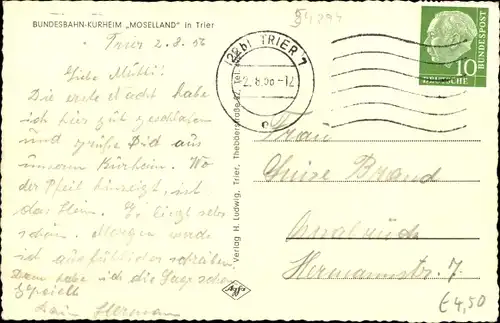 BUNDESBAHN-KURHEIM „MOSELLAND" in Trier
Trier 2.8.56
Liebe Mutti!
Die erste Nacht habe
ich hier gut geschlafen
und grüße Dich aus
unserem Kurheim. Wo
der Pfeil hinzeigt, ist
das Heim. Es liegt sehr
schön. Morgen werde
ich ausführlicher schreiben.
Dann habe ich die Tage schon
Dein Herman
Verlag H. Ludwig, Trier, Thebäerstraße
(22b) TRIER 1
2.8.56-12
e
10
DEUTSCHE
BUNDESPOST
Frau
Luise Brand
Osnabrück
Hermannstr. 7
€ 4,50